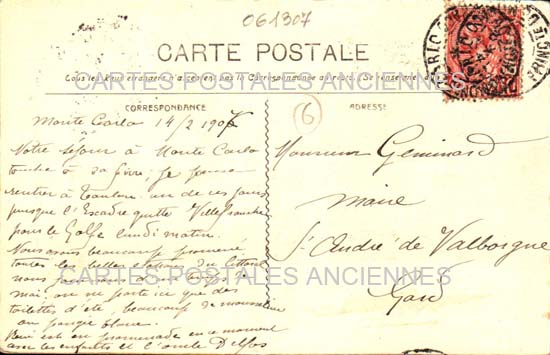 061307
CARTE POSTALE
Tous les Pays étrangers n'acceptent pas la Correspondance au recto. (Se renseigner
CARTES POSTALES ANCIENNES
CORRESPONDANCE
ADRESSE
6
Monte Carlo 14/2 1907
Notre séjour à Monte Carlo
touche à sa fin, je pense
rentrer à Toulon un de ces jours
puisque l'Escadre quitte Villefranche
pour le Golfe lundi matin.
Nous avons beaucoup promené
toutes les du littoral
nous
mai, on ne porte ici que des
toilettes d'été, beaucoup de mousseline
ou jongie blanc.
est en promenade en ce moment
avec les enfants et l'oncle Delfos
Monsieur Geminard
Maire
St André de Valborgne
Gard
CARTES POSTALES ANCIENNES